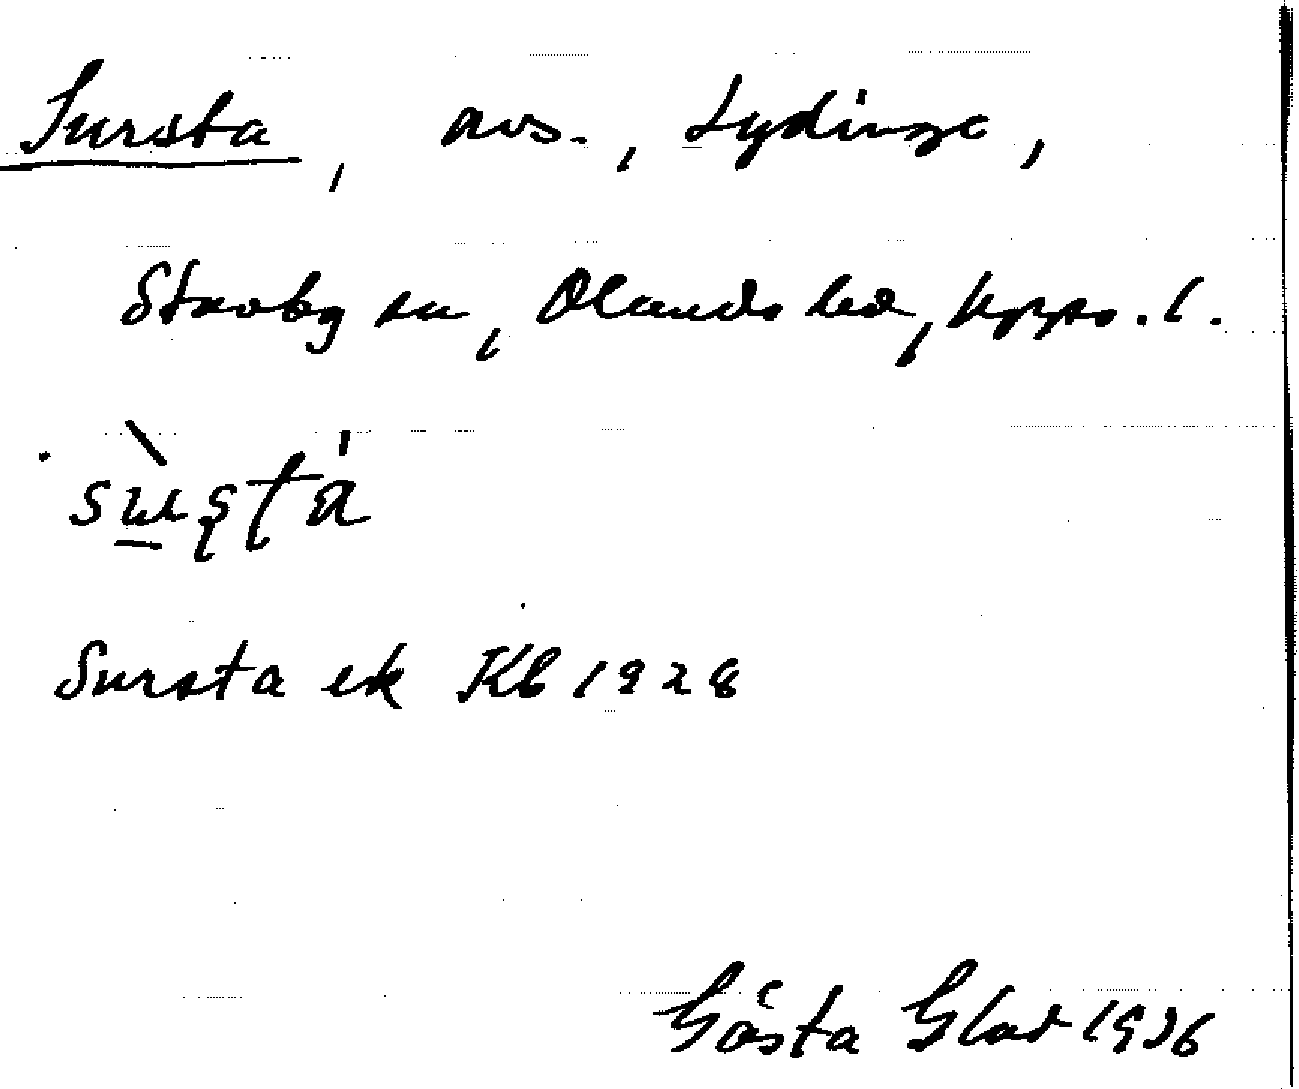 Sursta, avs., Lydinge,
Stavby sn, Olands hd, Upps. l.
Sursta ek Kb 1928
Gösta Glad 1936